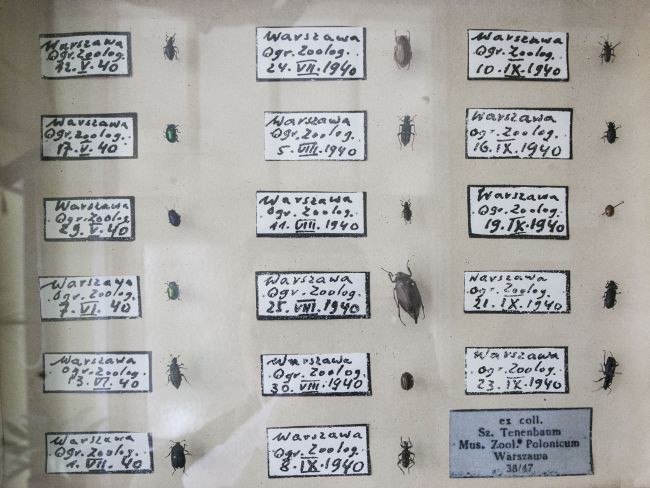 Warszawa
Ogr. Zoolog.
12. V. 40
Warszawa
Ogr. Zoolog.
17. V. 40
Warszawa
Ogr. Zoolog
29. V. 40
Warszawa
Ogr. Zoolog.
7. VI. 40
Warszawa
Ogr. Zoolog.
13. VI. 40
Warszawa
Ogr. Zoolog.
1. VII. 40
Warszawa
Ogr. Zoolog.
24. VII. 1940
Warszawa
Ogr. Zoolog.
5. VIII. 1940
Warszawa
Ogr. Zoolog.
11. VIII. 1940
Warszawa
Ogr. Zoolog.
25. VIII. 1940
Warszawa
Ogr. Zoolog.
30. VIII. 1940
Warszawa
Ogr. Zoolog.
8. IX. 1940
Warszawa
Ogr. Zoolog.
10. IX. 1940
Warszawa
Ogr. Zoolog.
16. IX. 1940
Warszawa
Ogr. Zoolog.
19. IX. 1940
Warszawa
Ogr. Zoolog.
21. IX. 1940
Warszawa
Ogr. Zoolog.
23. IX. 1940
ex coll.
Sz. Tenenbaum
Mus. Zool. Polonicum
Warszawa
38/47